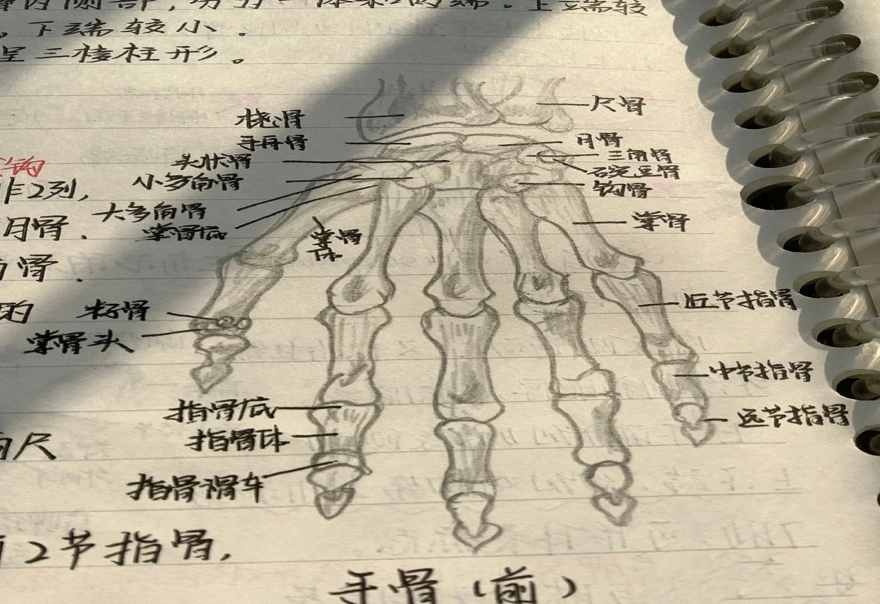 下端较小.
呈三棱柱形。
尺骨
桡骨
手舟骨
月骨
头状骨
三角骨
豌豆骨
小多角骨
钩骨
钩
2列,
大多角骨
掌骨
月骨.
掌骨底
掌骨体
骨.
近节指骨
籽骨
掌骨头
中节指骨
指骨底
远节指骨
指骨体
尺
指骨滑车
2节指骨,
手骨(前)